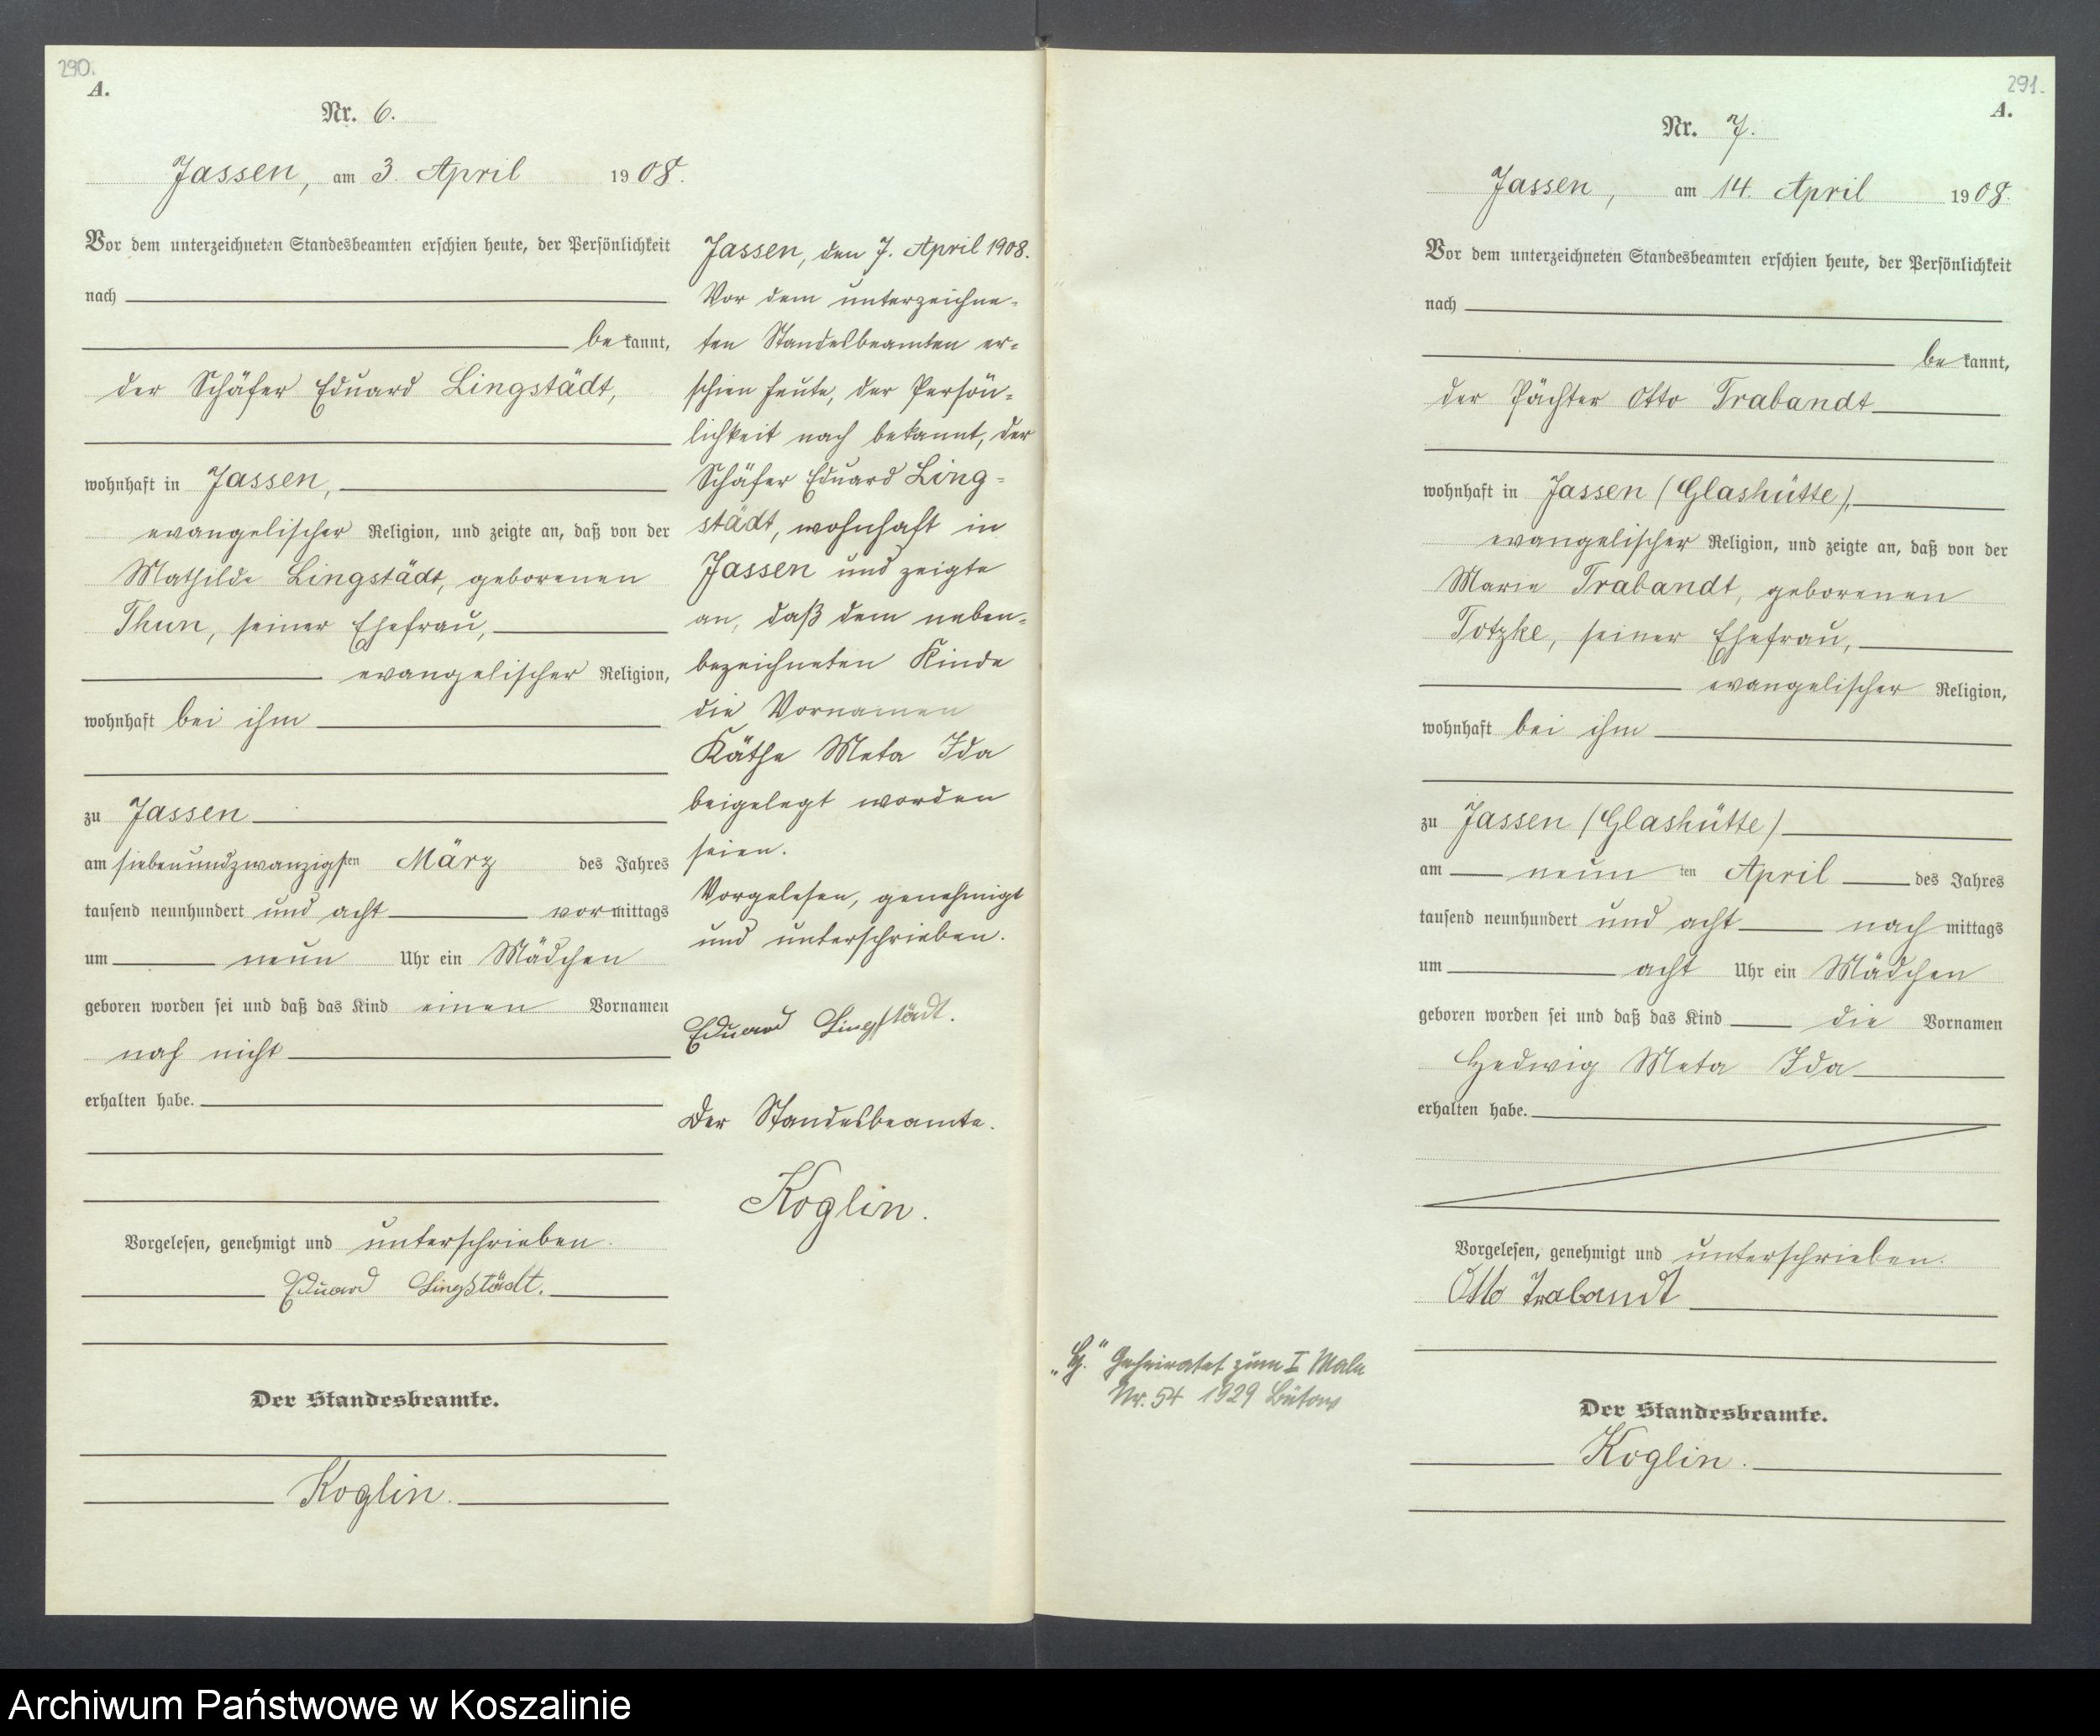 290.
A.
Nr. 6.
Jassen, am 3. April 1908.
Vor dem unterzeichneten Standesbeamten erschien heute, der Persönlichkeit
nach
bekannt,
der Schäfer Eduard Lingstädt,
wohnhaft in Jassen,
evangelischer Religion, und zeigte an, daß von der
Mathilde Lingstädt, geborenen
Thun, seiner Ehefrau,
evangelischer Religion,
wohnhaft bei ihm
zu Jassen
am siebenundzwanzigsten März des Jahres
tausend neunhundert und acht vormittags
um neun Uhr ein Mädchen
geboren worden sei und daß das Kind einen Vornamen
noch nicht
erhalten habe.
Vorgelesen, genehmigt und unterschrieben.
Eduard Lingstädt.
Der Standesbeamte.
Koglin.
Jassen, den 7. April 1908.
Vor dem unterzeichne-
ten Standesbeamten er-
schien heute, der Persön-
lichkeit nach bekannt, der
Schäfer Eduard Ling-
städt, wohnhaft in
Jassen und zeigte
an, daß dem neben-
bezeichneten Kinde
die Vornamen
Käthe Meta Ida
beigelegt worden
seien.
Vorgelesen, genehmigt
und unterschrieben.
Eduard Lingstädt.
Der Standesbeamte.
Koglin.
291.
A.
Nr. 7.
Jassen, am 14. April 1908.
Vor dem unterzeichneten Standesbeamten erschien heute, der Persönlichkeit
nach
bekannt,
der Pächter Otto Trabandt
wohnhaft in Jassen (Glashütte),
evangelischer Religion, und zeigte an, daß von der
Marie Trabandt, geborenen
Totzke, seiner Ehefrau,
evangelischer Religion,
wohnhaft bei ihm
zu Jassen (Glashütte)
am neunten April des Jahres
tausend neunhundert und acht nachmittags
um acht Uhr ein Mädchen
geboren worden sei und daß das Kind die Vornamen
Hedwig Meta Ida
erhalten habe.
Vorgelesen, genehmigt und unterschrieben.
Otto Trabandt
Der Standesbeamte.
Koglin.
„H." Geheiratet zum I Male
Nr. 54 1929 Bütow
Archiwum Państwowe w Koszalinie